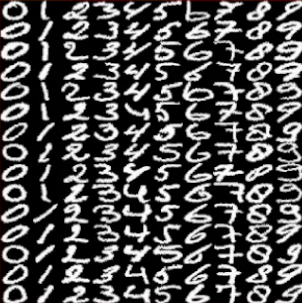 0 1 2 3 4 5 6 7 8 9
0 1 2 3 4 5 6 7 8 9
0 1 2 3 4 5 6 7 8 9
0 1 2 3 4 5 6 7 8 9
0 1 2 3 4 5 6 7 8 9
0 1 2 3 4 5 6 7 8 9
0 1 2 3 4 5 6 7 8 9
0 1 2 3 4 5 6 7 8 9
0 1 2 3 4 5 6 7 8 9
0 1 2 3 4 5 6 7 8 9
0 1 2 3 4 5 6 7 8 9
0 1 2 3 4 5 6 7 8 9
0 1 2 3 4 5 6 7 8 9
0 1 2 3 4 5 6 7 8 9
0 1 2 3 4 5 6 7 8 9